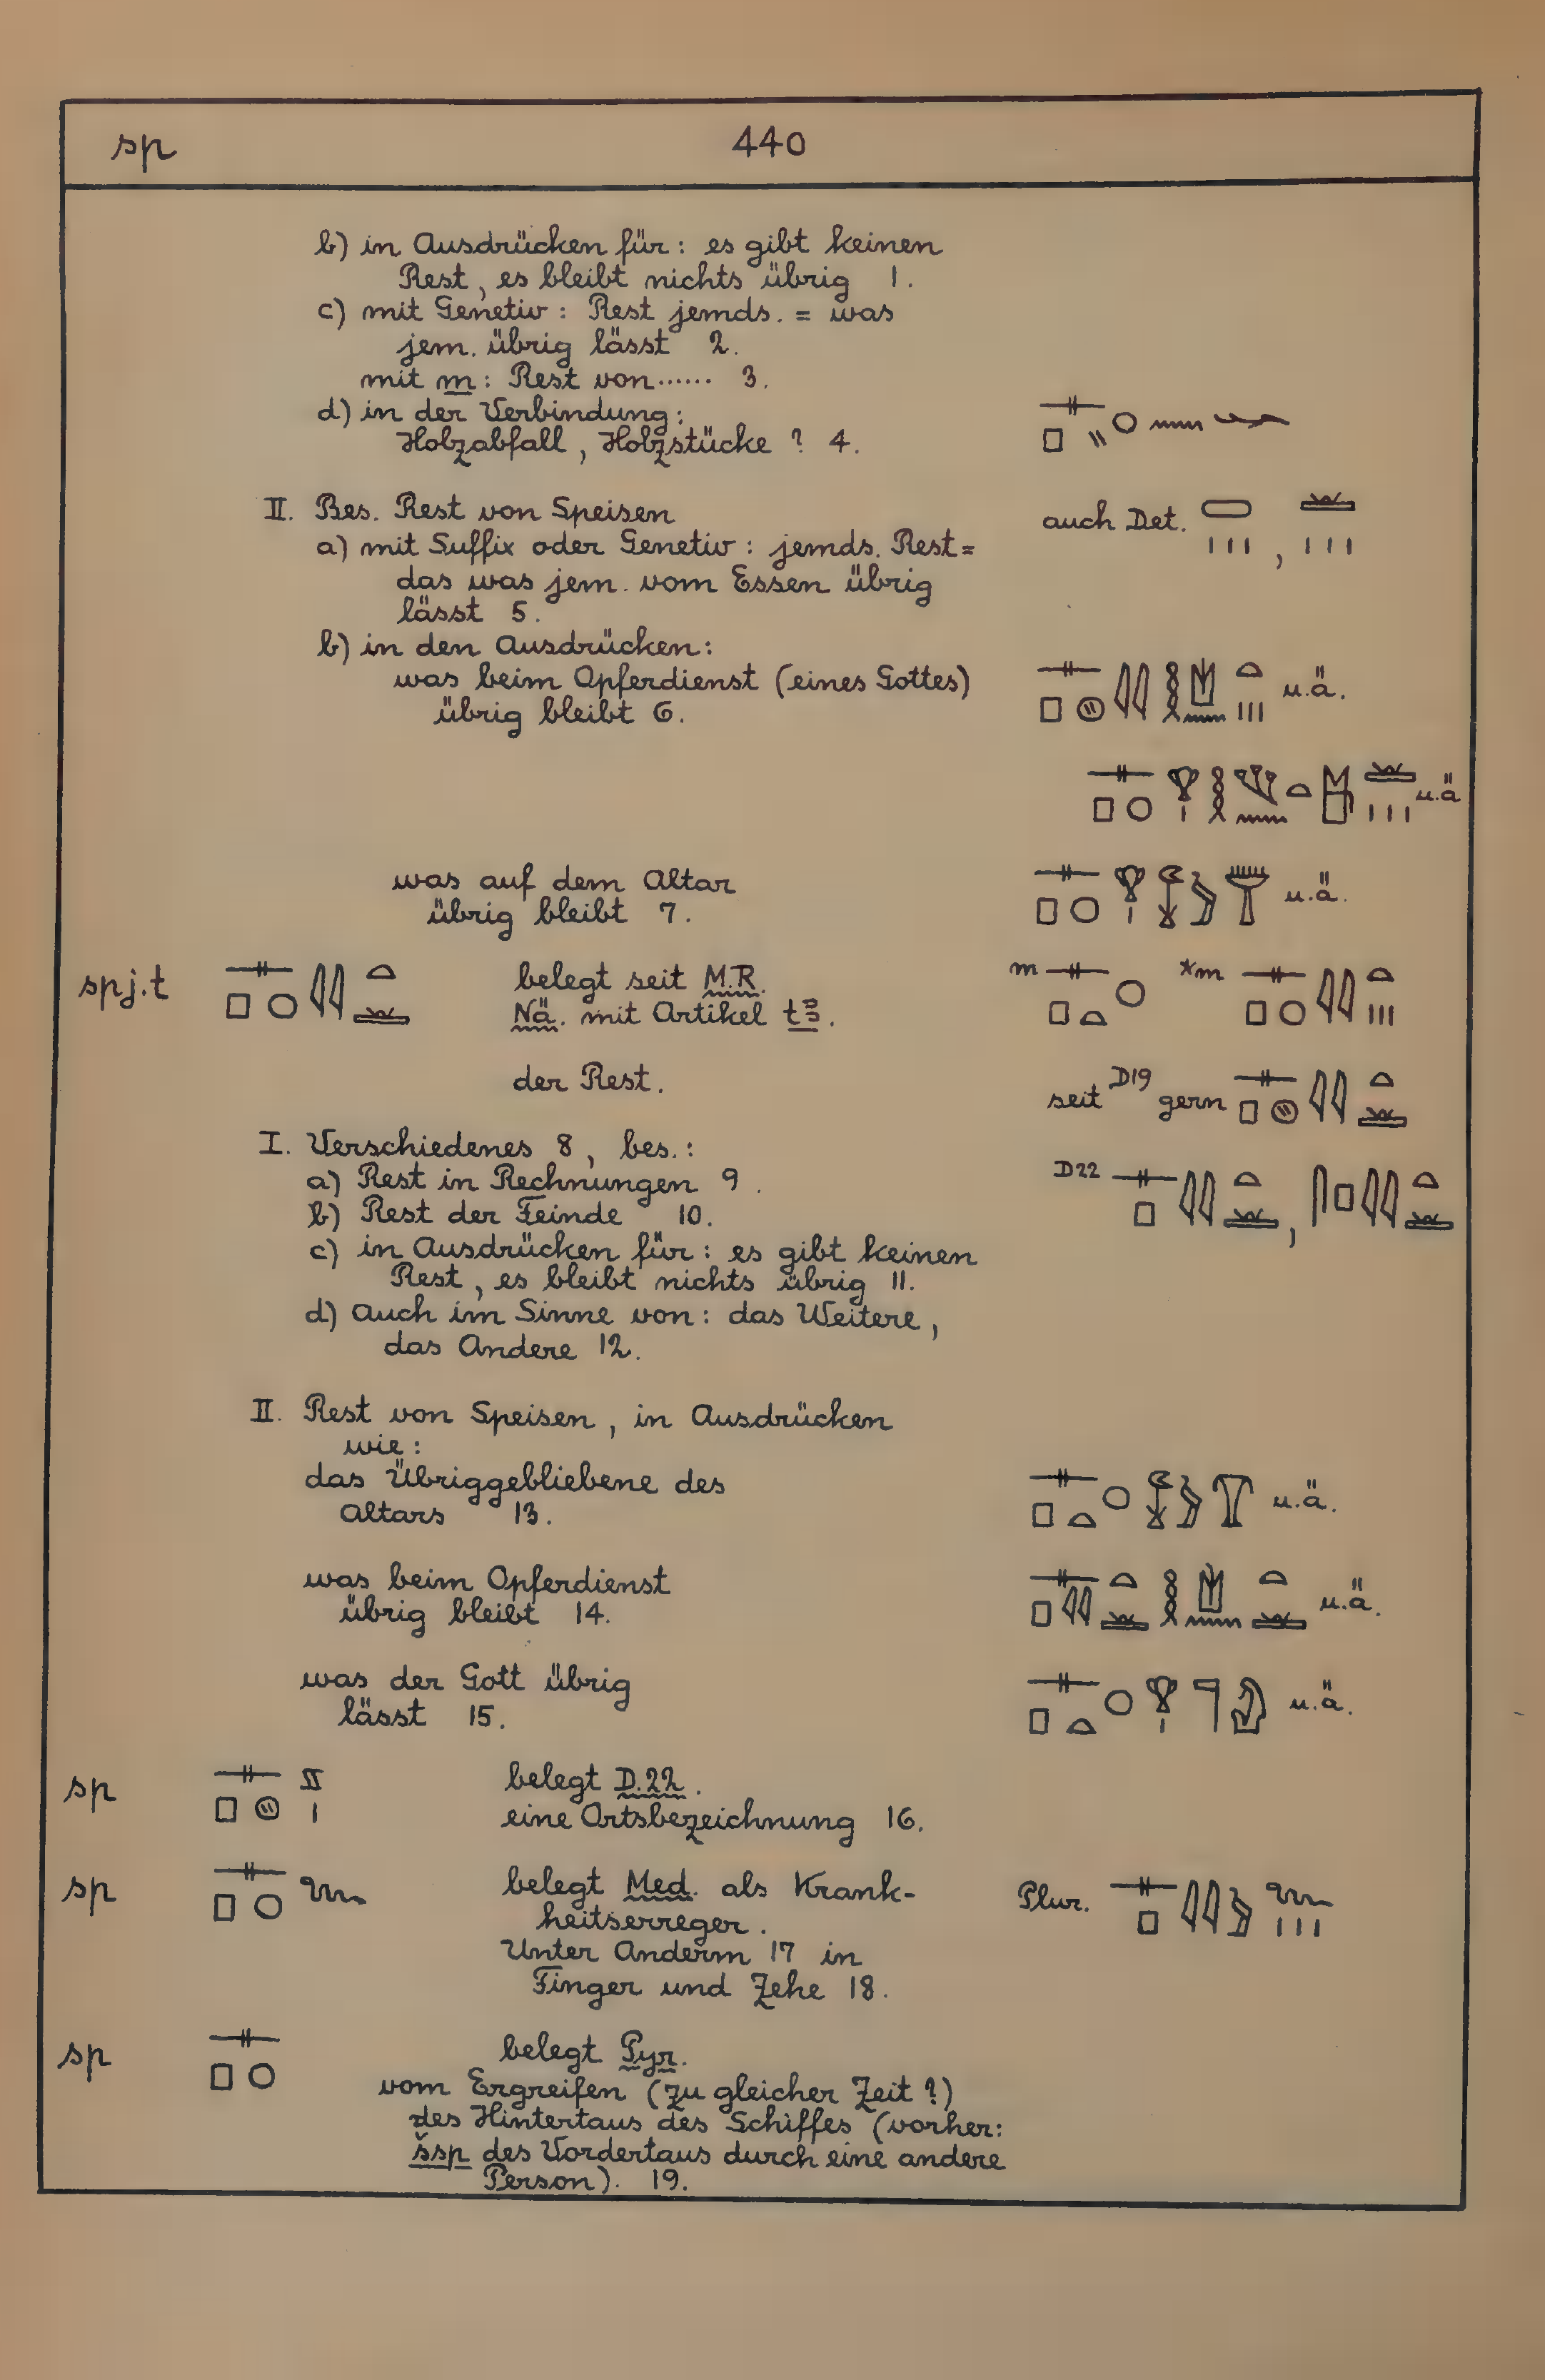 sp 440
b) in Ausdrücken für: es gibt keinen
Rest, es bleibt nichts übrig 1.
c) mit Genetiv: Rest jemds. = was
jem. übrig lässt 2.
mit m: Rest von...... 3.
d) in der Verbindung:
Holzabfall, Holzstücke? 4.
II. Bes. Rest von Speisen
auch Det.
a) mit Suffix oder Genetiv: jemds. Rest=
das was jem. vom Essen übrig
lässt 5.
b) in den Ausdrücken:
was beim Opferdienst (eines Gottes) u.ä.
übrig bleibt 6.
u.ä
was auf dem Altar u.ä.
übrig bleibt 7.
spj.t belegt seit M.R. m *m
Nä. mit Artikel tꜣ.
der Rest. seit D19 gern
I. Verschiedenes 8, bes.:
a) Rest in Rechnungen 9. D22
b) Rest der Feinde 10.
c) in Ausdrücken für: es gibt keinen
Rest, es bleibt nichts übrig 11.
d) auch im Sinne von: das Weitere,
das Andere 12.
II. Rest von Speisen, in Ausdrücken
wie:
das Übriggebliebene des
Altars 13. u.ä.
was beim Opferdienst
übrig bleibt 14. u.ä.
was der Gott übrig
lässt 15. u.ä.
sp belegt D.22.
eine Ortsbezeichnung 16.
sp belegt Med. als Krank- Plur.
heitserreger.
Unter Anderm 17 in
Finger und Zehe 18.
sp belegt Pyr.
vom Ergreifen (zu gleicher Zeit?)
des Hintertaus des Schiffes (vorher:
šsp des Vordertaus durch eine andere
Person). 19.